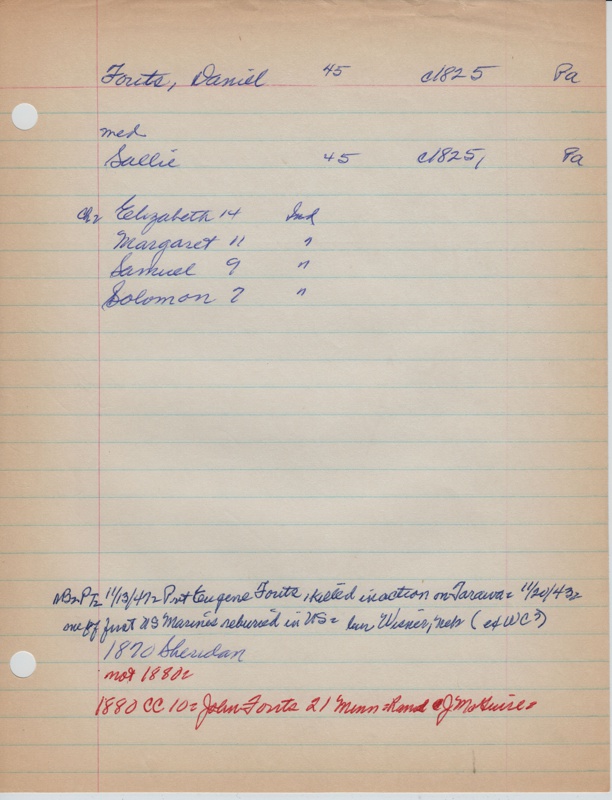 Fouts, Daniel 45 c1825 Pa
med
Sallie 45 c1825, Pa
Ch= Elizabeth 14 Ind
Margaret 11 "
Samuel 9 "
Solomon 7 "
11/13/47= Pvt Eugene Fouts, killed in action on Tarawa= 11/20/43=
one of first US Marines reburied in US= bur Wisner, Neb (ex WC?)
1870 Sheridan
not 1880=
1880 CC 10= John Fouts 21 Minn= Rand CJ McGuire=